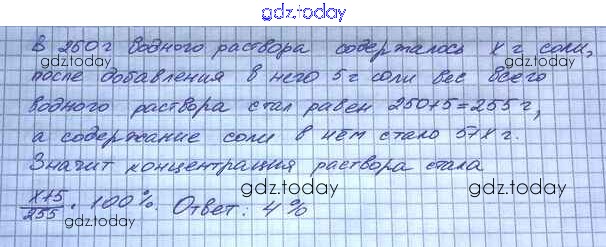 gdz.today
В 250 г водного раствора содержалось x г соли,
после добавления в него 5 г соли вес всего
gdz.today
водного раствора стал равен 250+5=255 г,
gdz.today
а содержание соли в нем стало 5+x г.
gdz.today
Значит концентрация раствора стала
gdz.today
x+5/255 · 100%. Ответ: 4%
gdz.today
gdz.today